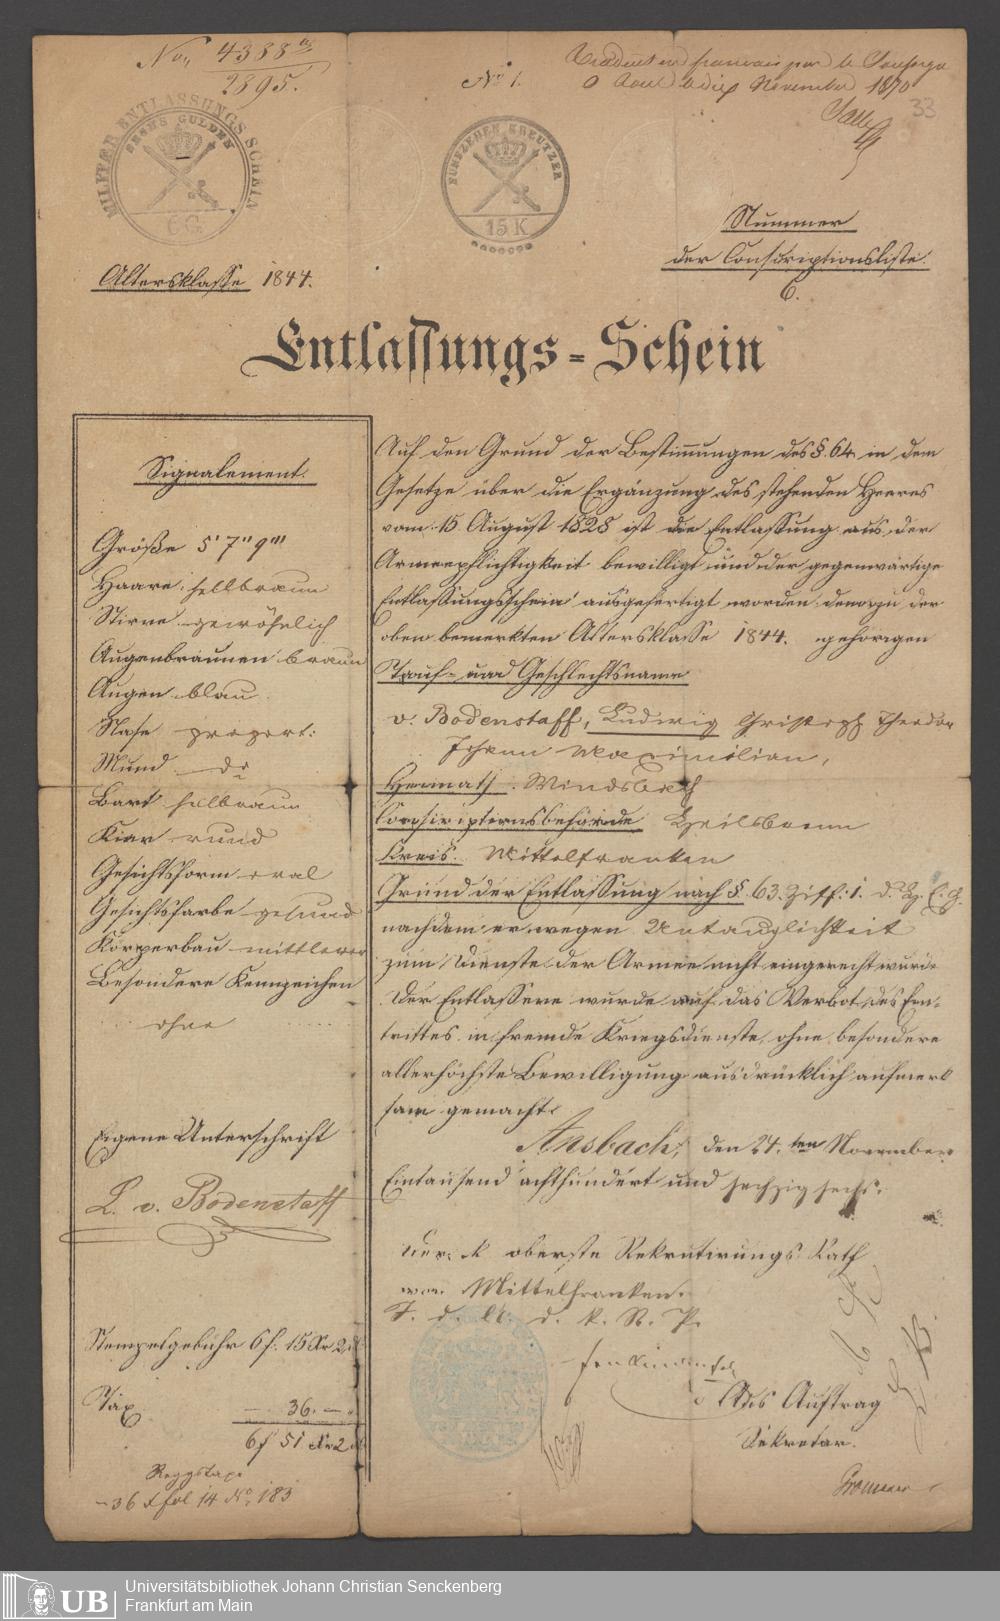 No. 4388
2895.
No 1.
November 1870
33
MILITÆR ENTLASSUNGS SCHEIN
SECHS GULDEN
6 G
FUNFZEHEN KREUTZER
15 K
Nummer
der Conscriptionsliste.
6.
Altersklasse 1844.
Entlassungs-Schein
Signalement.
Größe 5' 7" 9'''
Haare hellbraun
Stirne gewöhnlich
Augenbraunen braun
Augen blau
Nase proport:
Mund do
Bart hellbraun
Kinn rund
Gesichtsform oval
Gesichtsfarbe gesund
Körperbau mittlerer
Besondere Kennzeichen
ohne
Eigene Unterschrift
L. v. Bodenstaff
Stempelgebühr 6 f. 15 Xr 2
Tax 36. —
6 f 51 Xr 2
36 X fol 14 No 183
Auf den Grund der Bestimmungen des §. 64 in dem
Gesetze über die Ergänzung des stehenden Heeres
vom 15 August 1828 ist die Entlassung aus der
Armeepflichtigkeit bewilligt und der gegenwärtige
Entlassungsschein ausgefertigt worden dem zu der
oben bemerkten Altersklasse 1844. gehörigen
Tauf- und Geschlechtsname
v. Bodenstaff, Ludwig Christoph Theodor
Johann Maximilian,
Heimath Windsbach
Conscriptionsbehörde Heilsbronn
Kreis. Mittelfranken
Grund der Entlassung nach §. 63. Ziff: 1. d. H. E. G.
nachdem er wegen Untauglichkeit
zum Dienste der Armee nicht eingereiht wurde
Der Entlassene wurde auf das Verbot des Ein-
trittes in fremde Kriegsdienste, ohne besondere
allerhöchste Bewilligung ausdrücklich aufmerk
sam gemacht.
Ansbach, den 24. ten November
Eintausend achthundert und sechzig sechs.
Der k. oberste Rekrutirungs Rath
von Mittelfranken.
d. k. R. P.
Aus Auftrag
Sekretär.
UB
Universitätsbibliothek Johann Christian Senckenberg
Frankfurt am Main